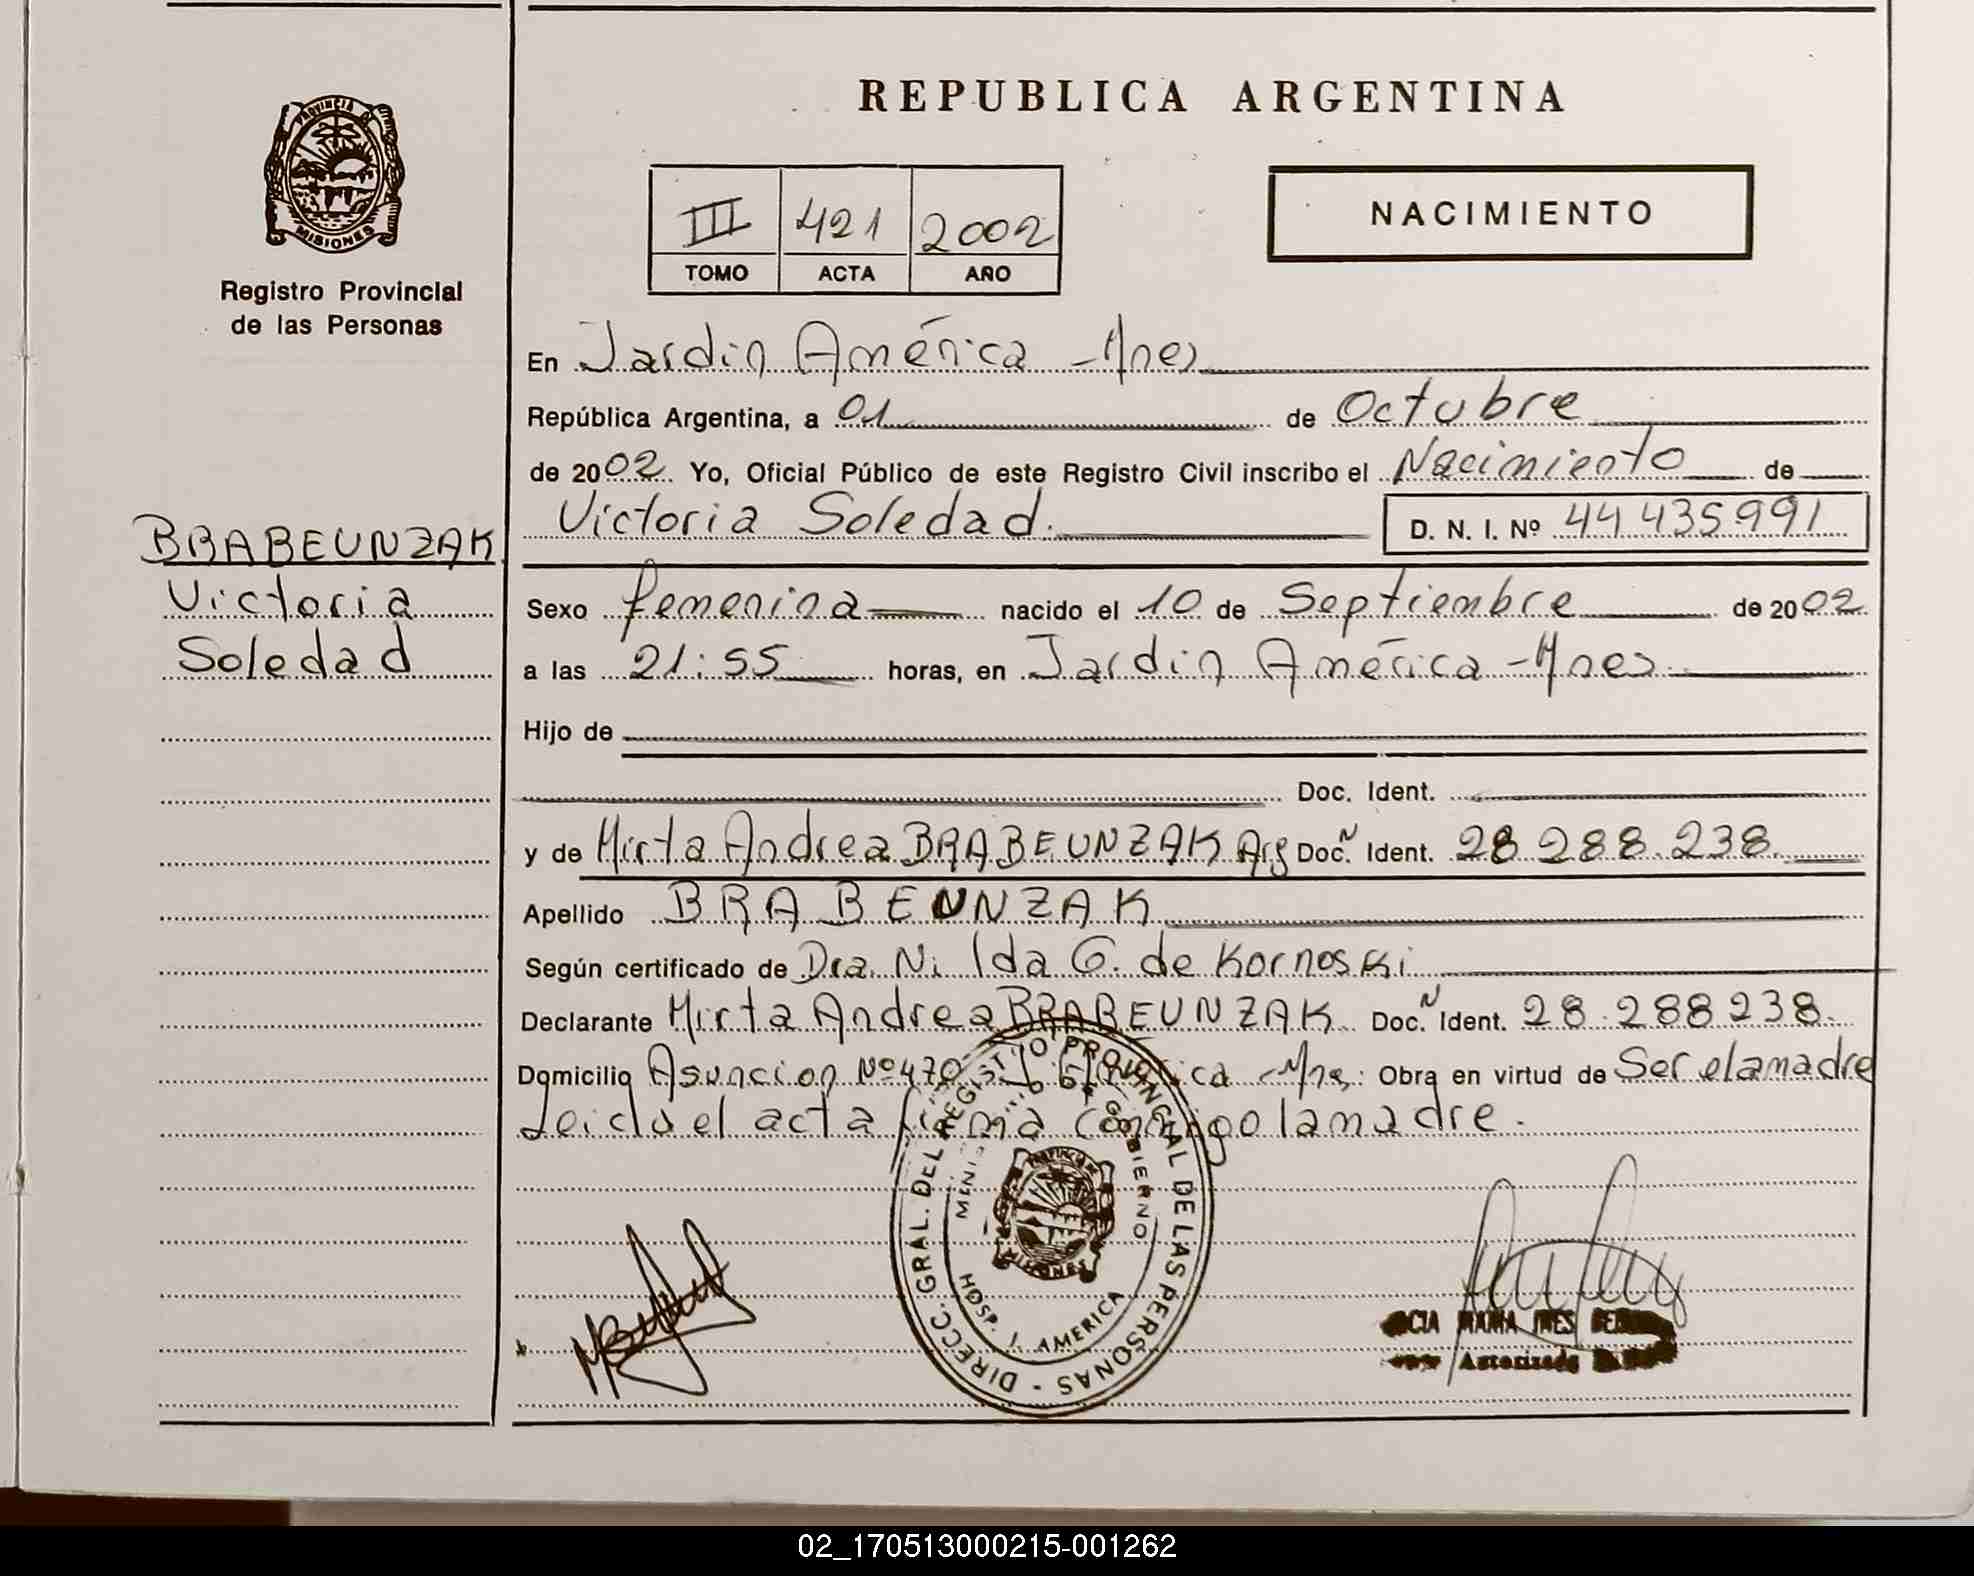 REPUBLICA ARGENTINA
PROVINCIA DE
MISIONES
Registro Provincial
de las Personas
III 421 2002
TOMO ACTA AÑO
NACIMIENTO
En Jardin América - Mnes
República Argentina, a 01 de Octubre
de 2002 Yo, Oficial Público de este Registro Civil inscribo el Nacimiento de
Victoria Soledad. D. N. I. Nº 44 435991
BRABEUNZAK
Victoria
Soledad
Sexo femenina nacido el 10 de Septiembre de 2002
a las 21:55 horas, en Jardin América - Mnes
Hijo de
Doc. Ident.
y de Mirta Andrea BRABEUNZAK Arg Doc. N Ident. 28 288.238.
Apellido BRABEUNZAK
Según certificado de Dra. Nilda G. de Kornoski
Declarante Mirta Andrea BRABEUNZAK Doc. N Ident. 28.288238.
Domicilio Asuncion Nº 470 - Mnes. Obra en virtud de Ser el a madre
Leida el acta firma conmigo la madre.
DIRECC. GRAL. DEL REGISTRO PROVINCIAL DE LAS PERSONAS -
GOBIERNO
HOSP. J. AMERICA
MISIONES
MARIA INES
Autorizado
02_170513000215-001262